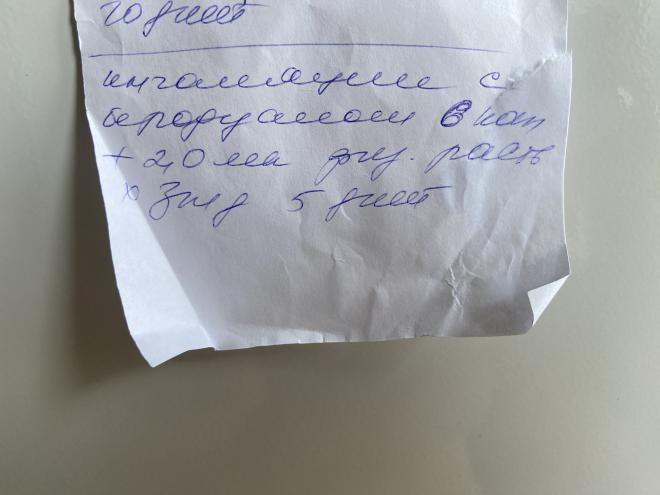 10 дней
ингаляции с
беродуалом 6 кап
+ 2,0 мл физ. раств
х 3 р/д 5 дней